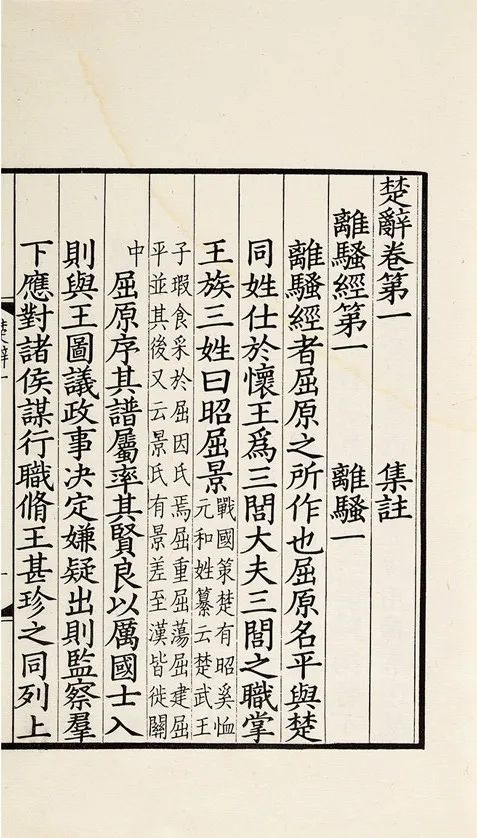 楚辭卷第一 集註
離騷經第一 離騷一
離騷經者屈原之所作也屈原名平與楚
同姓仕於懷王爲三閭大夫三閭之職掌
王族三姓曰昭屈景
戰國策楚有昭奚恤
元和姓纂云楚武王
子瑕食采於屈因氏焉屈重屈蕩屈建屈
平並其後又云景氏有景差至漢皆徙關
中 屈原序其譜屬率其賢良以厲國士入
則與王圖議政事决定嫌疑出則監察羣
下應對諸侯謀行職脩王甚珍之同列上